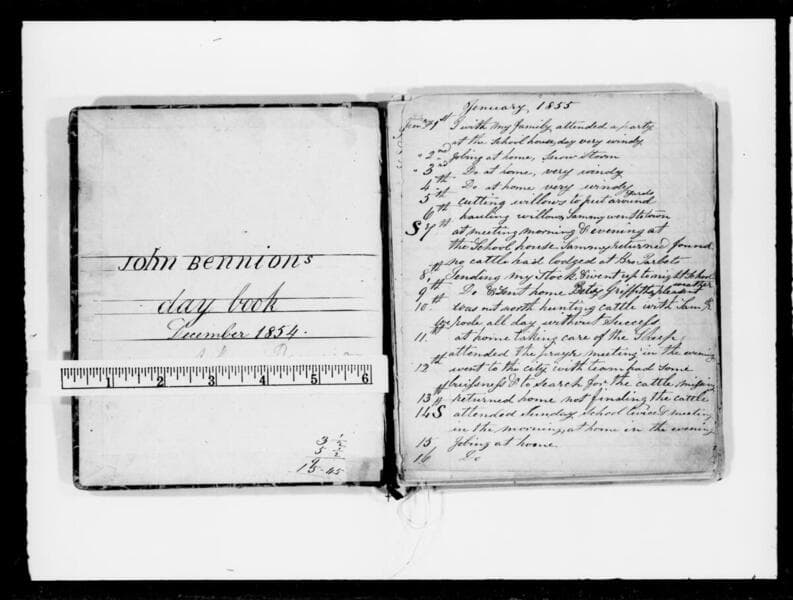 John Bennions
day book
December 1854.
1 2 3 4 5 6
3 1/2
5 1/2
15-45
Jenuary, 1855
1st I with my family, attended a party
at the school house, day very windy
" 2nd Jobing at home, snow storm
" 3rd Do at home, very windy
4th Do at home very windy
yards
5th cutting willows to put around
6th hauling willows, Sammy went to town
S 7th at meeting morning & evening at
the School house Sammy returned found
no cattle had lodged at Bro Tarbets
8th tending my Stock & went up to night School
weather
9th Do & Sent home Betsy Griffiths, pleasant
10th was out north hunting cattle with Sam
poole all day without Success
11th at home taking care of the Sheep
attended the prayr meeting in the evening
12th went to the city with team had some
breifsness & to search for the cattle, missing
13th returned home not finding the cattle
14 S attended Sunday School & meeting
in the morning, at home in the evening
15 Jobing at home
16 Do